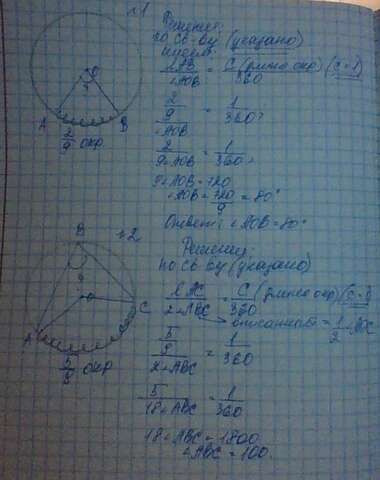 №1
Решение:
по св-ву (указано)
имеем:
ﬞl AB / ∠AOB = C (длина окр) / 360 (C = 1)
2/9 / ∠AOB = 1/360;
2 / 9∠AOB = 1/360;
9∠AOB = 720
∠AOB = 720/9 = 80°
Ответ: ∠AOB = 80°
O
A
B
2/9 окр.
№2.
Решение:
по св-ву (указано)
l AC / 2∠ABC = C (длина окр) / 360 (C = 1)
вписанный = 1/2
5/9 / 2∠ABC = 1/360
5 / 18∠ABC = 1/360
18∠ABC = 1800
∠ABC = 100.
B
O
C
A
5/9 окр